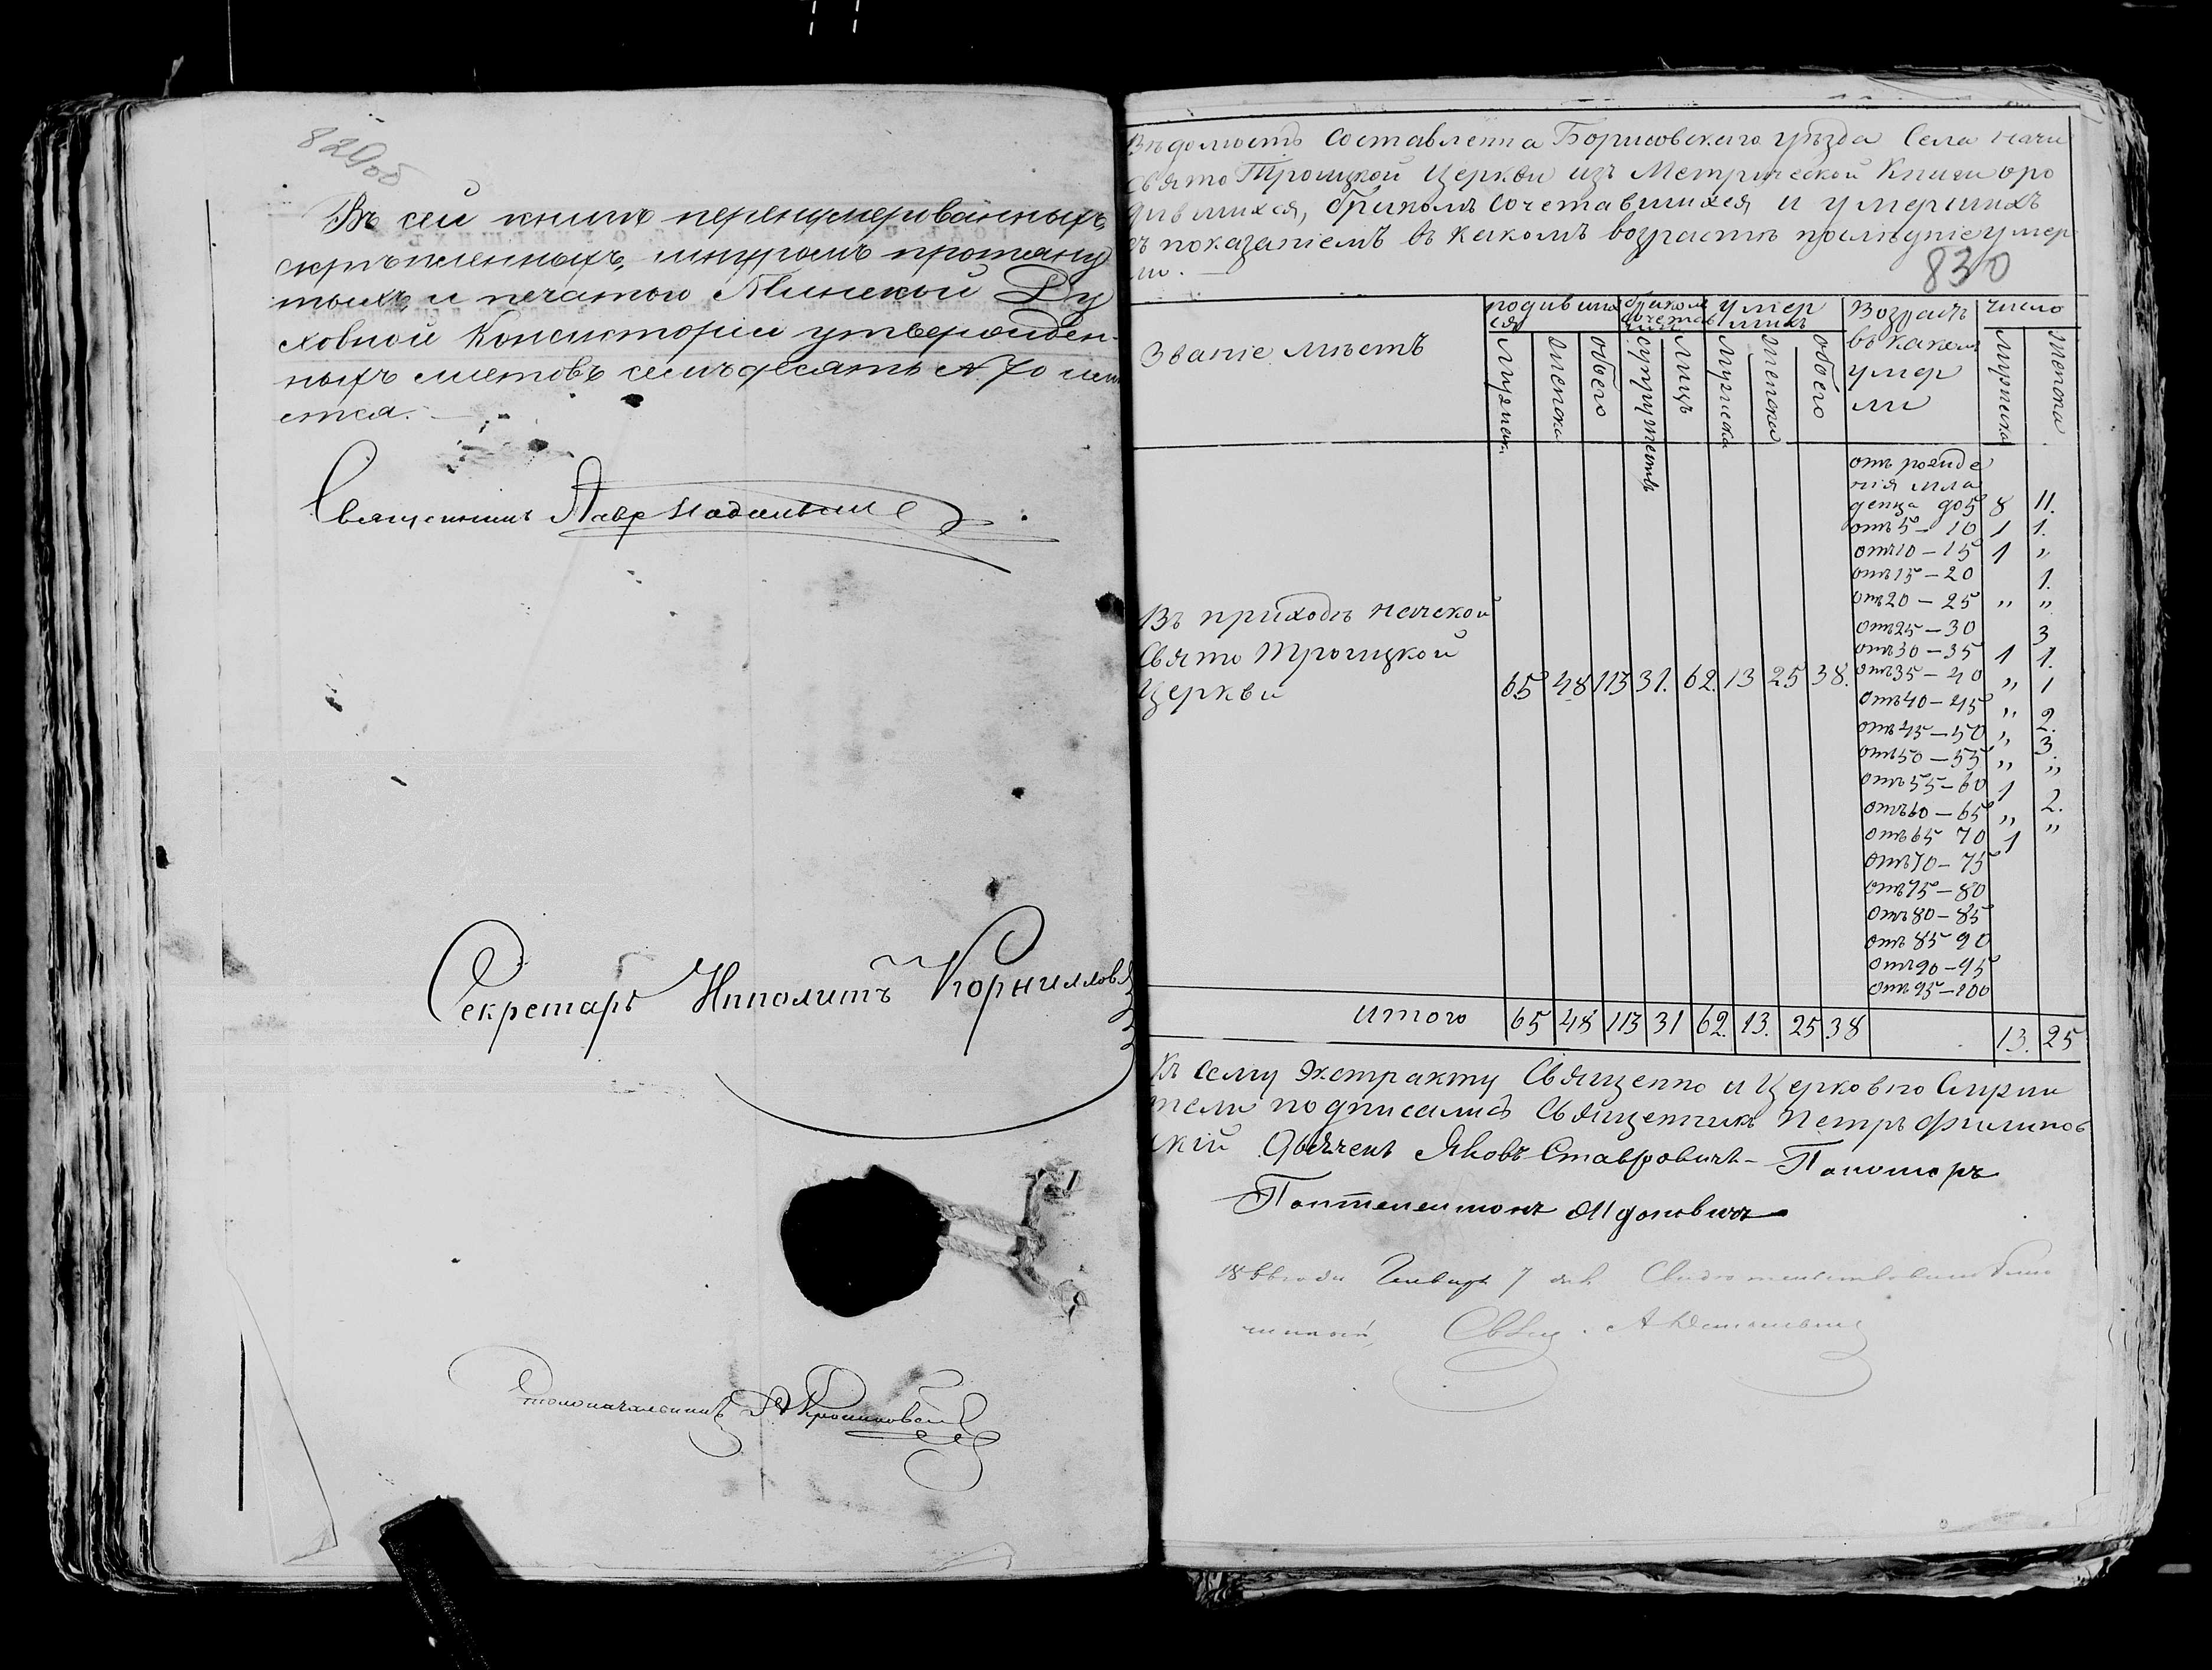 829об
Въ сей книгѣ перенумерованныхъ,
скрѣпленныхъ, шнуромъ протяну
тыхъ и печатью Минской Ду
ховной Консисторіи утвержден-
ныхъ листовъ семьдесять № 70 име
ется.
Священникъ Лавр
Секретарь Ипполитъ Корниллов
Столоначальникъ
Вѣдомость составленна Борисовскаго уѣзда Села Начи
Свято Троицкой Церкви изъ Метрической Книги о ро
дившихся, бракомъ сочетавшихся и умершихъ
съ показаніемъ въ какомъ возрастѣ послѣдніе умер
ли.
830
Званіе мѣстъ
родивших
ся
бракомъ
сочетав
шихся
умер
шихъ
Возрастъ
въ каком
умер
ли
число
мужеск.
женска
обоего
супружествъ
лицъ
мужеска
женска
обоего
мужеска
женска
отъ рожде
нія мла
денца до 5 8 11.
отъ 5 – 10 1 1.
отъ 10 – 15 1 "
отъ 15 – 20 1.
отъ 20 – 25 " "
отъ 25 – 30 3
отъ 30 – 35 1 1.
отъ 35 – 40 " 1
отъ 40 – 45 " 2.
отъ 45 – 50 " 3.
отъ 50 – 55 " "
отъ 55 – 60 1 2.
отъ 60 – 65 " "
отъ 65 70 1
отъ 70 – 75
отъ 75 – 80
отъ 80 – 85
отъ 85 90
отъ 90 – 95
отъ 95 – 100
Въ приходѣ Начской
Свято Троицкой
Церкви 65 48 113 31. 62. 13 25 38.
итого 65 48 113 31 62. 13. 25 38 13. 25
Къ сему экстракту Священно и Церковно Служи
тели подписались Священникъ Петръ Филипов
скій Дьячекъ Яковъ Ставровичъ – Пономарь
Пантелеимонъ
Генваря 7 дня
Свящ.